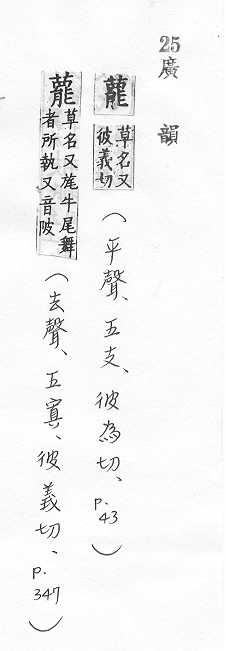 25廣韻
藣 草名又彼義切(平聲、五支、彼為切、p.43)
藣 草名又旄牛尾舞者所執又音陂(去聲、五寘、彼義切、p.347)